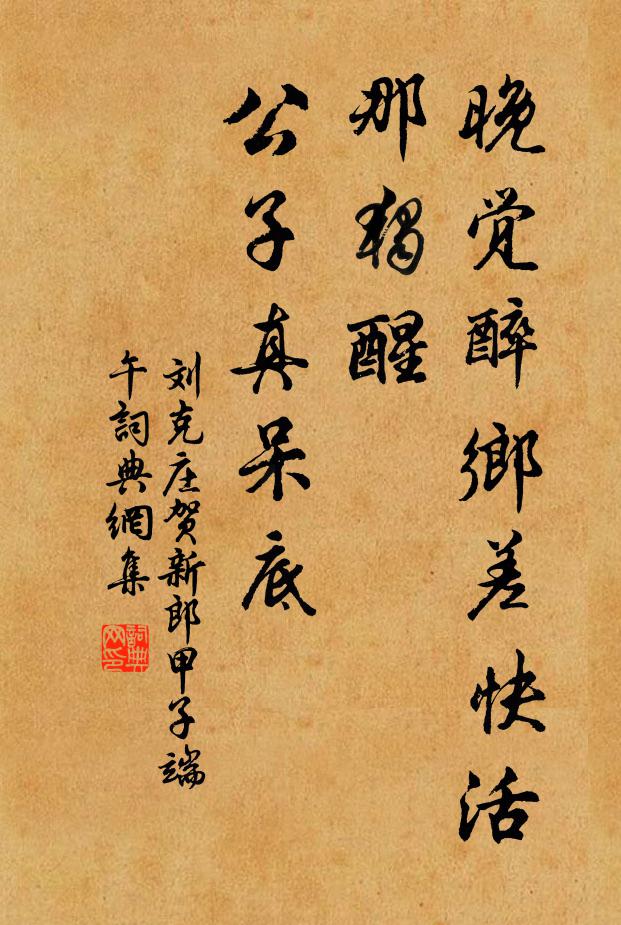 晚觉醉鄉差快活
那獨醒
公子真呆底
刘克庄贺新郎甲子端
午詞典網集
詞典网印